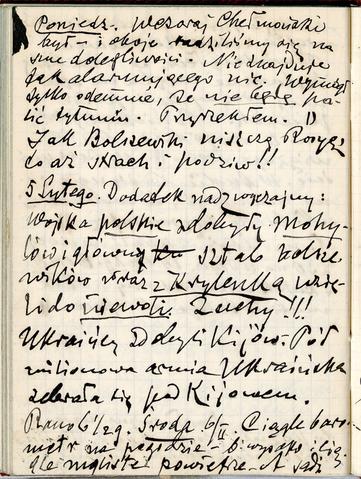 Poniedz. Wczoraj Chełmoński
był – i oboje radziliśmy się na
swe dolegliwości. Nie znajduje
jak alarmującego nic. Wymógł
tylko odemnie, że nie będę pa-
lić tytuniu. Przyrzekłem. !!
Jak Bolszewiki niszczą Rosyę,
to aż strach i podziw!!
5 Lutego. Dodatek nadzwyczajny:
Wojska polskie zdobyły Mohy-
lów i główny sztab bolsze
wików wraz z Krylenką wzię-
li do niewoli. Zuchy!!!
Ukraińcy zdobyli Kijów. Pół
milionowa armia Ukraińska
zebrała się pod Kijowem.
Rano 6½ g. Środa 6/II. Ciągle baro-
metr na pogodzie – b. wysoko i cią-
gle mgliste powietrze. A sadź